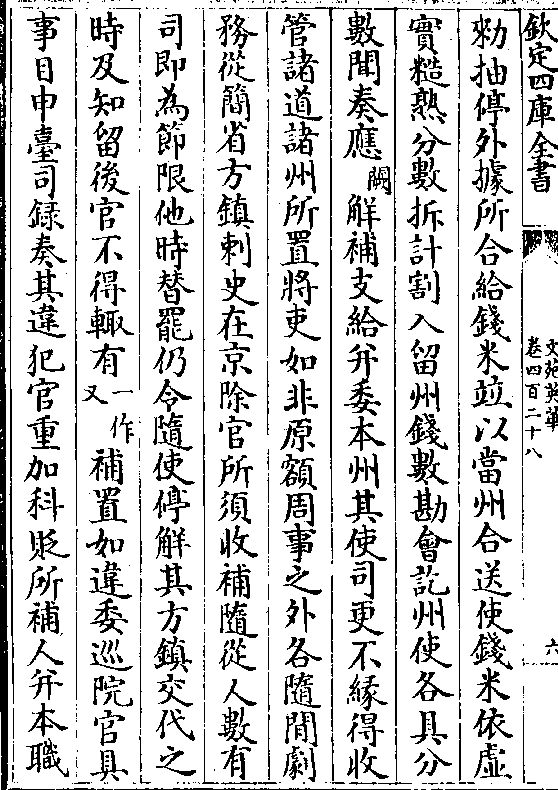 欽定四庫全書
文苑英華
卷四百二十八
六
勑抽停外據所合給錢米竝以當州合送使錢米依虛
實糙熟分數拆計割入留州錢數勘會訖州使各具分
數聞奏應闕解補支給幷委本州其使司更不緣得收
管諸道諸州所置將吏如非原額周事之外各隨閒劇
務從簡省方鎮刺史在京除官所須收補隨從人數有
司即為節限他時替罷仍令隨使停解其方鎮交代之
時及知留後官不得輙有一作又補置如違委巡院官具
事目申臺司録奏其違犯官重加科貶所補人幷本職